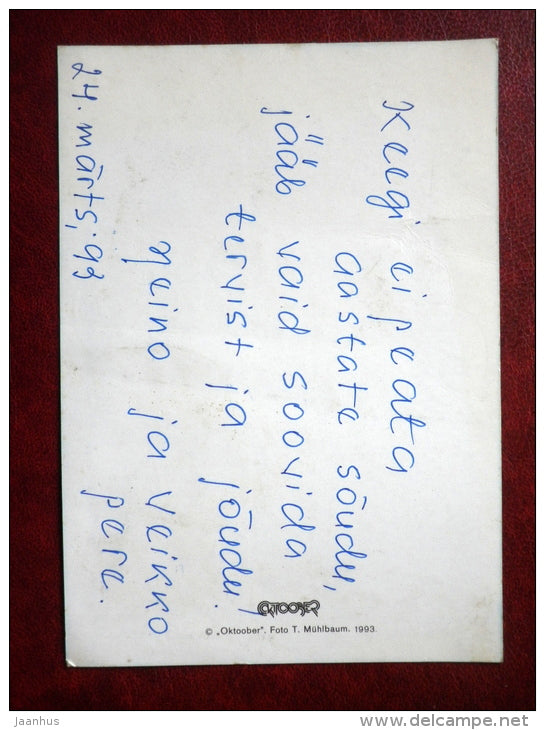 Keegi ei peata
aastate sõudu,
jääb vaid soovida
tervist ja jõudu!
Heino ja Veikko
pere.
24. märts, 93
OKTOOBER
© „Oktoober". Foto T. Mühlbaum. 1993.
jaanhus
www.delcampe.net